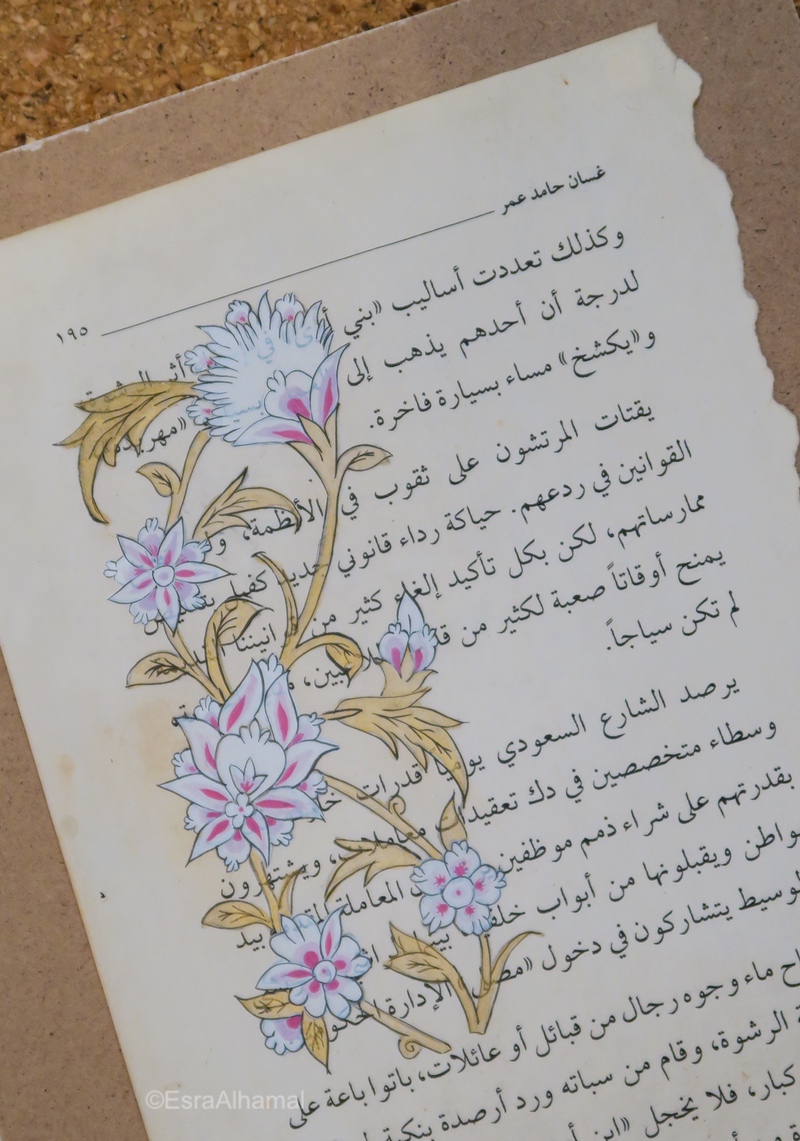 غسان حامد عمر
١٩٥
وكذلك تعددت أساليب «بني
لدرجة أن أحدهم يذهب إلى
و«يكشخ» مساء بسيارة فاخرة.
يقتات المرتشون على ثقوب في الأنظمة، و
القوانين في ردعهم. حياكة رداء قانوني جديد كفيل
ممارساتهم، لكن بكل تأكيد إلغاء كثير من
يمنح أوقاتاً صعبة لكثير من
لم تكن سياجاً.
يرصد الشارع السعودي يومياً قدرات
وسطاء متخصصين في دك تعقيدات معاملات، ويشتهرون
بقدرتهم على شراء ذمم موظفين المعاملة
ويقبلونها من أبواب
يتشاركون في دخول الإدارة
ماء وجوه رجال من قبائل أو عائلات، باتوا باعة على
الرشوة، وقام من سباته ورد أرصدة بنكية
كبار، فلا يخجل «ابن
©EsraAlhamal